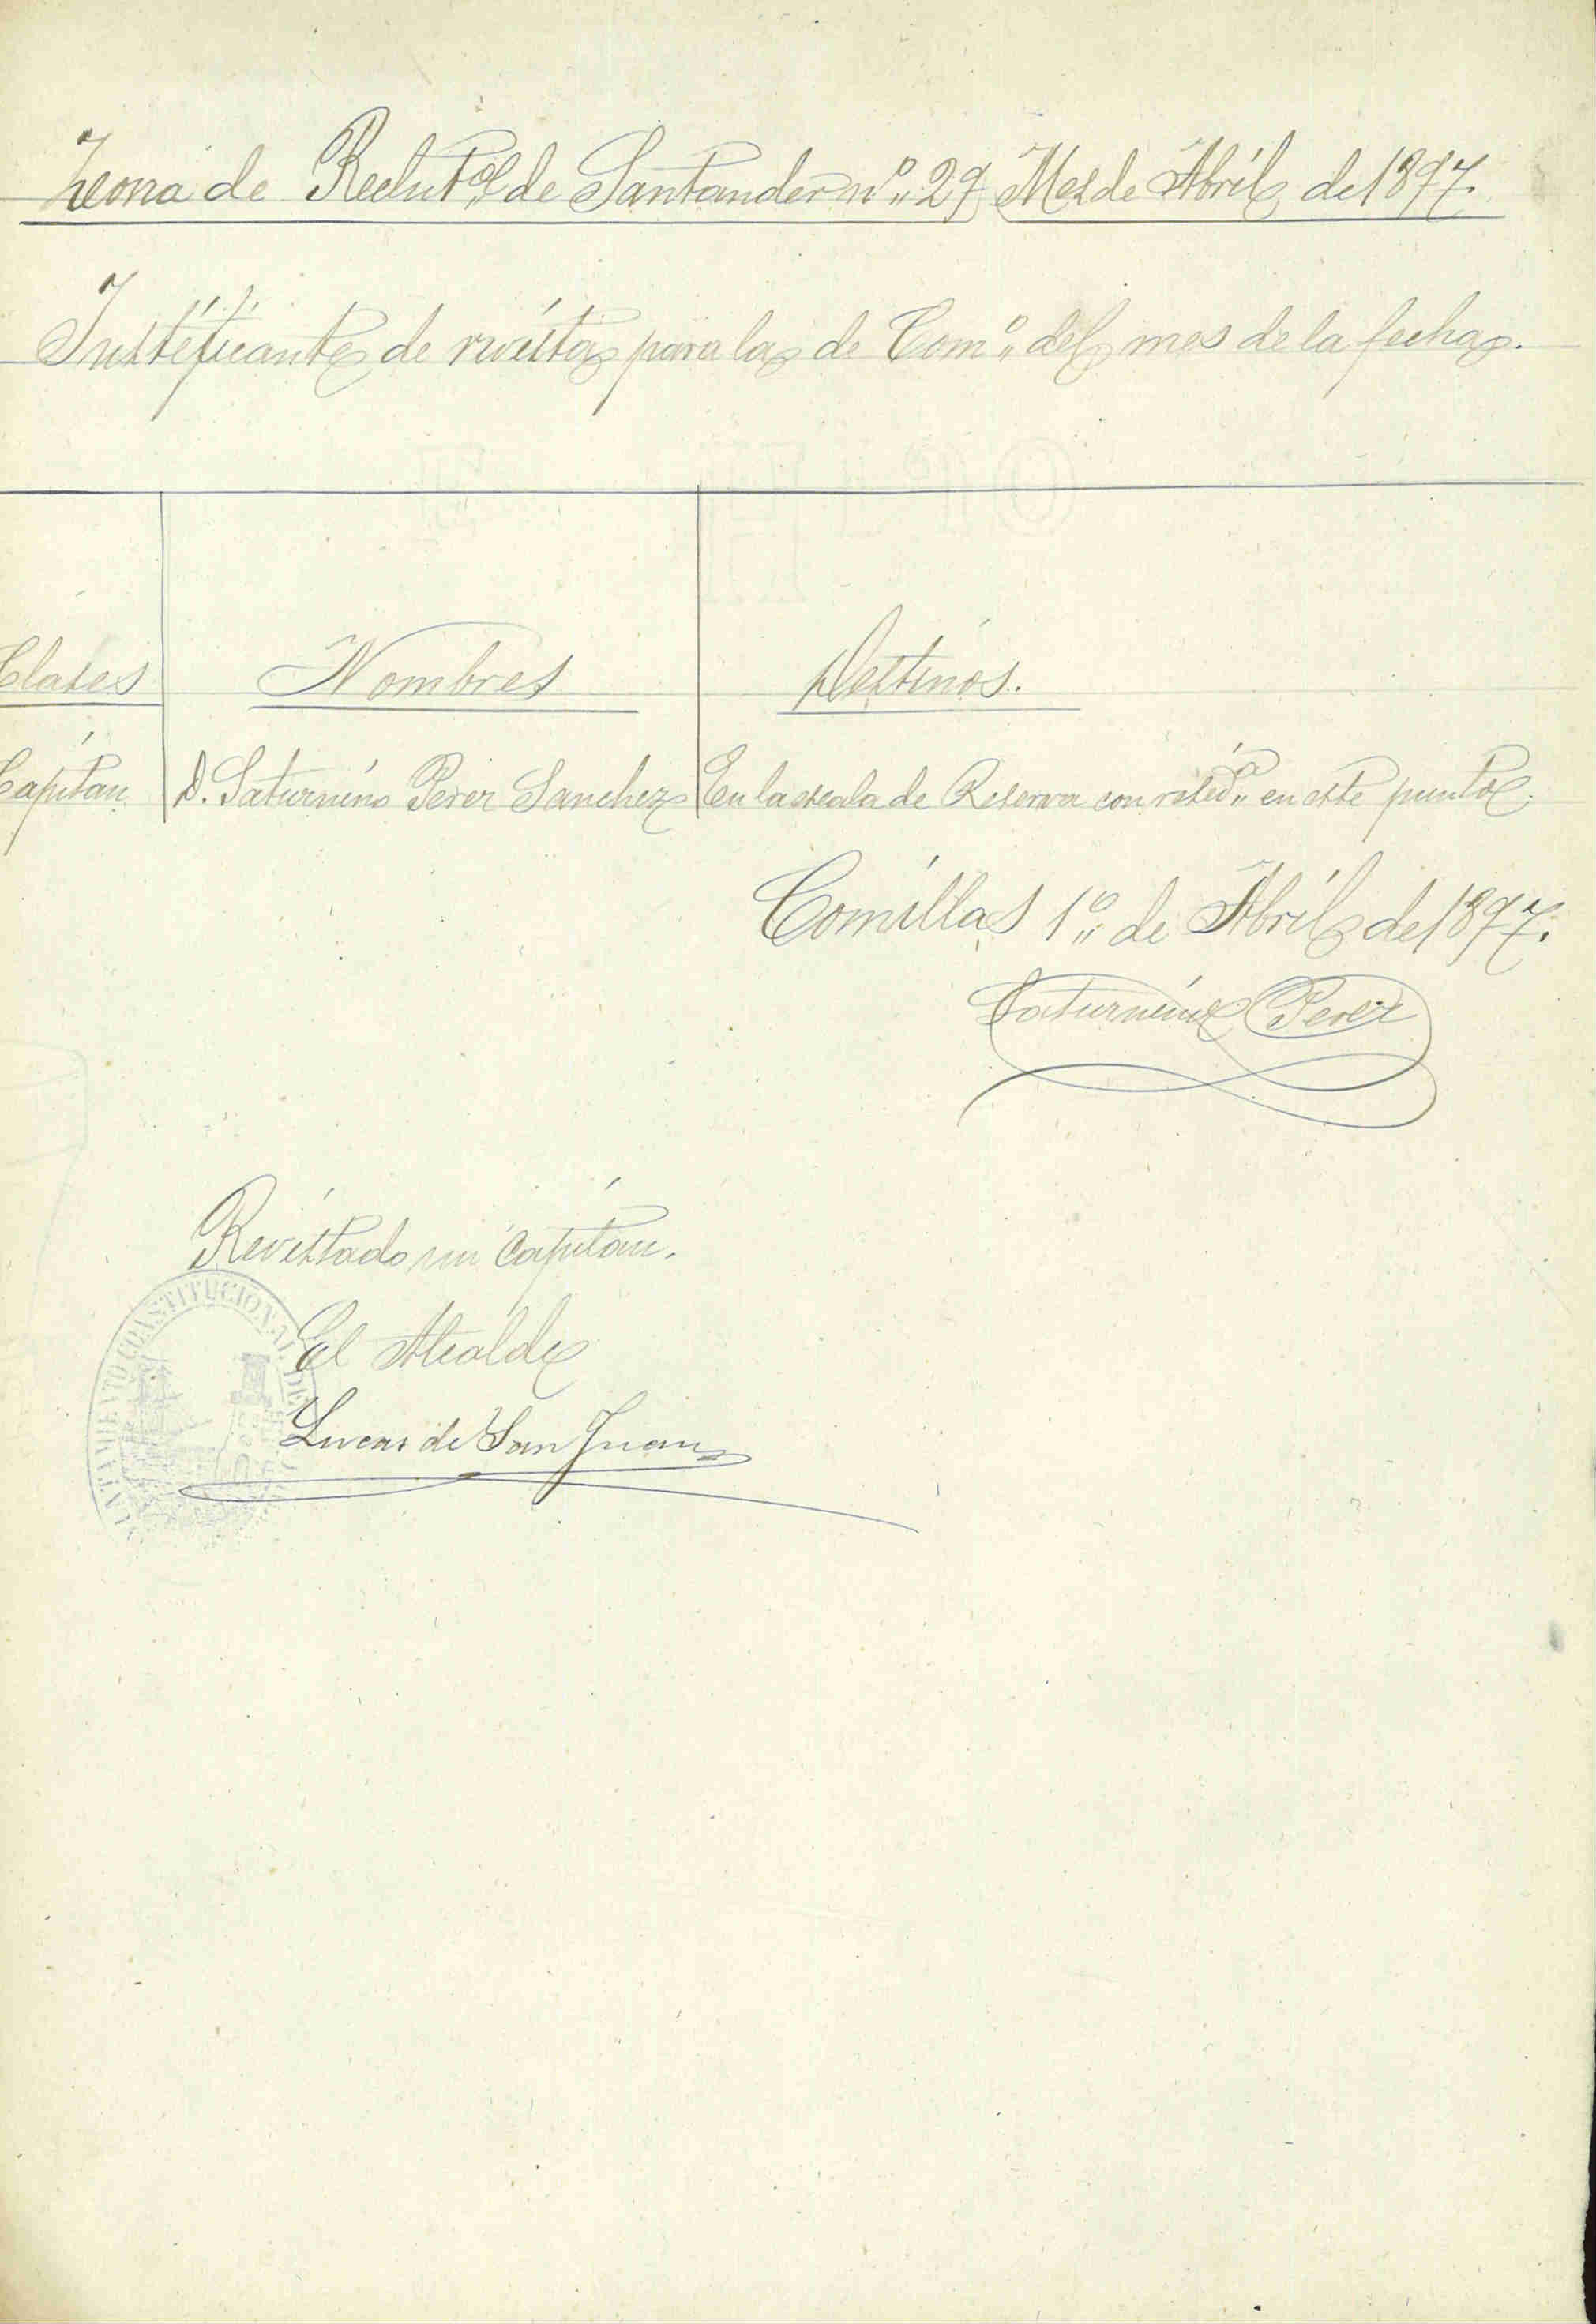 Zona de Reclut.º de Santander nº 29 Mes de Abril de 1897.
Justificante de revista para la de Com.º del mes de la fecha.
Clases
Nombres
Destinos.
Capitan
D. Saturnino Perez Sanchez
En la escala de Reserva con resid.ª en este punto.
Comillas 1º de Abril de 1897.
Saturnino Perez
Revistado un Capitan.
El Alcalde
Lucas de San Juan
AYUNTAMIENTO CONSTITUCIONAL DE